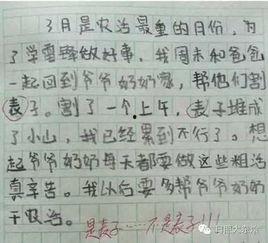 3月是农活最重的月份,为
了学雷锋做好事,我周末和爸爸
一起回到爷爷奶奶家,帮他们割
表子。割了一个上午,表子堆成
了小山,我已经累到不行了。想
起爷爷奶奶每天都要做这些粗活
真辛苦。我以后要多帮爷爷奶奶
干农活。
是麦子…不是表子!!!